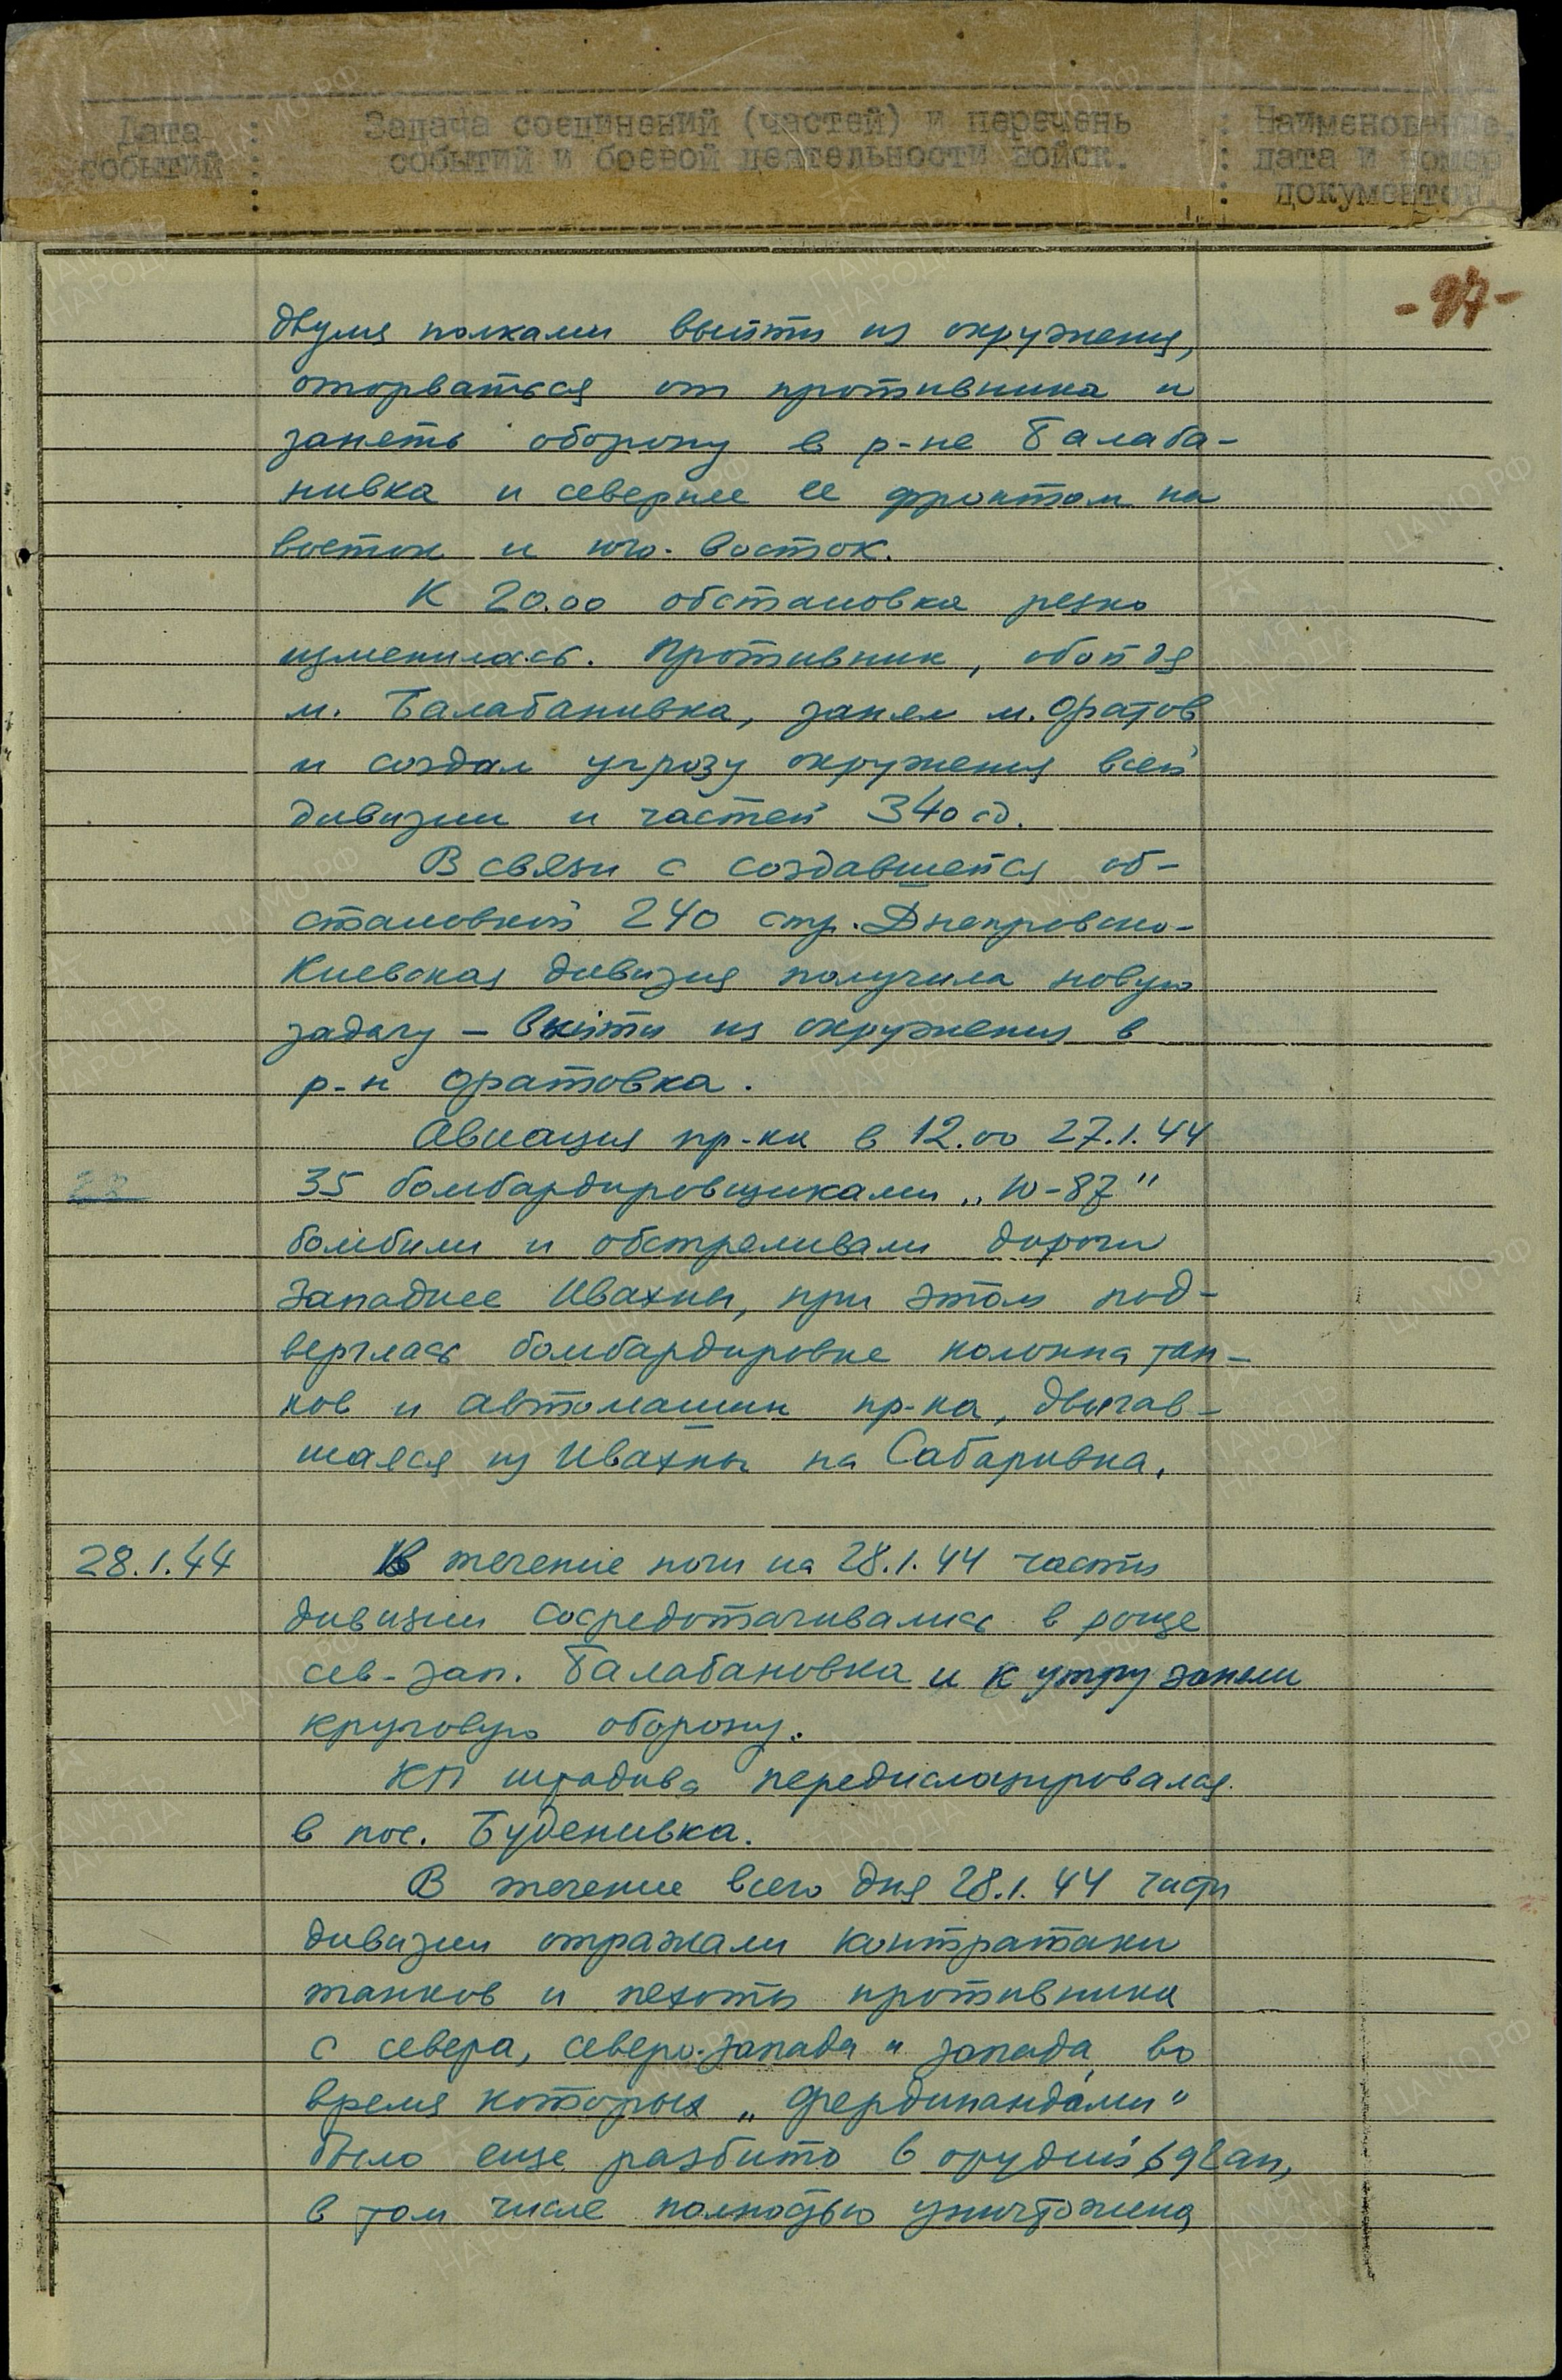 Дата : Задача соединений (частей) и перечень : Наименование,
событий : событий и боевой деятельности войск. : дата и номер
: : документов.
- 97 -
двумя полками выйти из окружения,
оторваться от противника и
занять оборону в р-не Балаба-
нивка и севернее ее фронтом на
восток и юго-восток.
К 20.00 обстановка резко
изменилась. Противник, обойдя
м. Балабанивка, занял м. Оратов
и создал угрозу окружения всей
дивизии и частей 340 сд.
В связи с создавшейся об-
становкой 240 стр. Днепровско-
Киевская дивизия получила новую
задачу – выйти из окружения в
р-н Оратовка.
Авиация пр-ка в 12.00 27.1.44
35 бомбардировщиками „Ю-87"
бомбили и обстреливали дороги
западнее Ивахны, при этом под-
верглась бомбардировке колонна тан-
ков и автомашин пр-ка, двигав-
шаяся из Ивахны на Сабаривка.
28.1.44 В течение ночи на 28.1.44 части
дивизии сосредотачивались в роще
сев-зап. Балабановка и к утру заняли
круговую оборону.
КП штадива передислоцировался
в пос. Буденивка.
В течение всего дня 28.1.44 части
дивизии отражали контратаки
танков и пехоты противника
с севера, северо-запада и запада, во
время которых „Фердинандами"
было еще разбито 6 орудий
в том числе полностью уничтожена